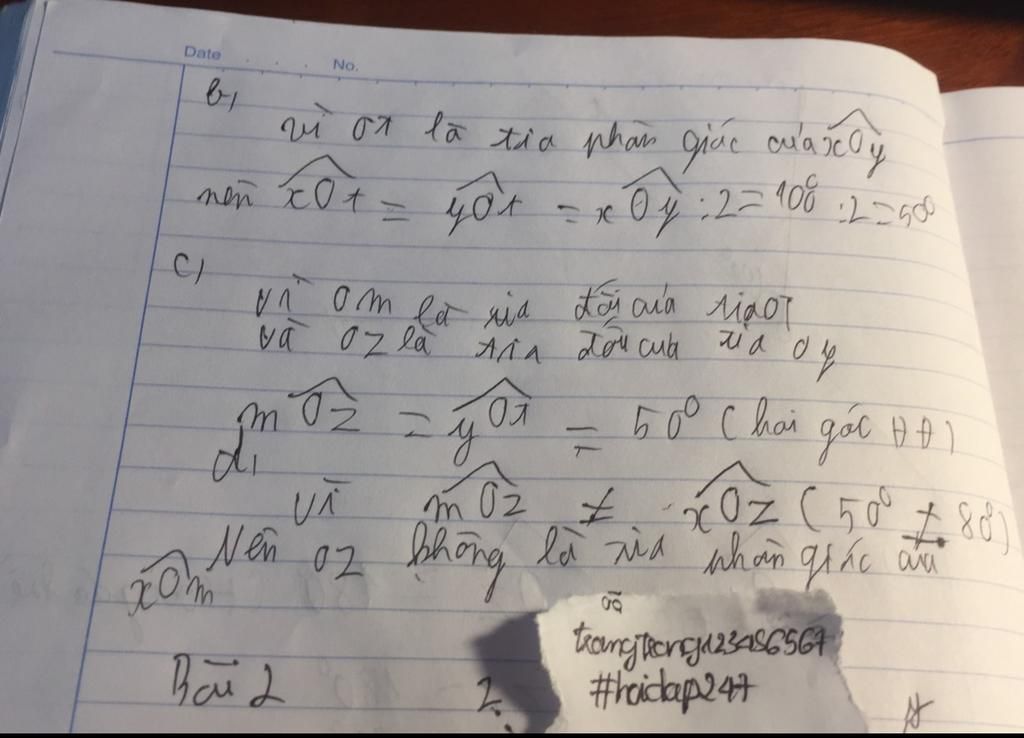 Date No.
b,
vì Ot là tia phân giác của xOy
nên xOt = yOt = xOy : 2 = 100° : 2 = 50°
c,
vì Om là tia đối của tia Ot
và Oz là tia đối của tia Oy
mOz = yOt = 50° (hai góc ĐĐ)
d,
vì mOz ≠ xOz (50° ≠ 80°)
Nên Oz không là tia phân giác của
xOm
Bài 2
2
trangtrang123456567
#hoidap247